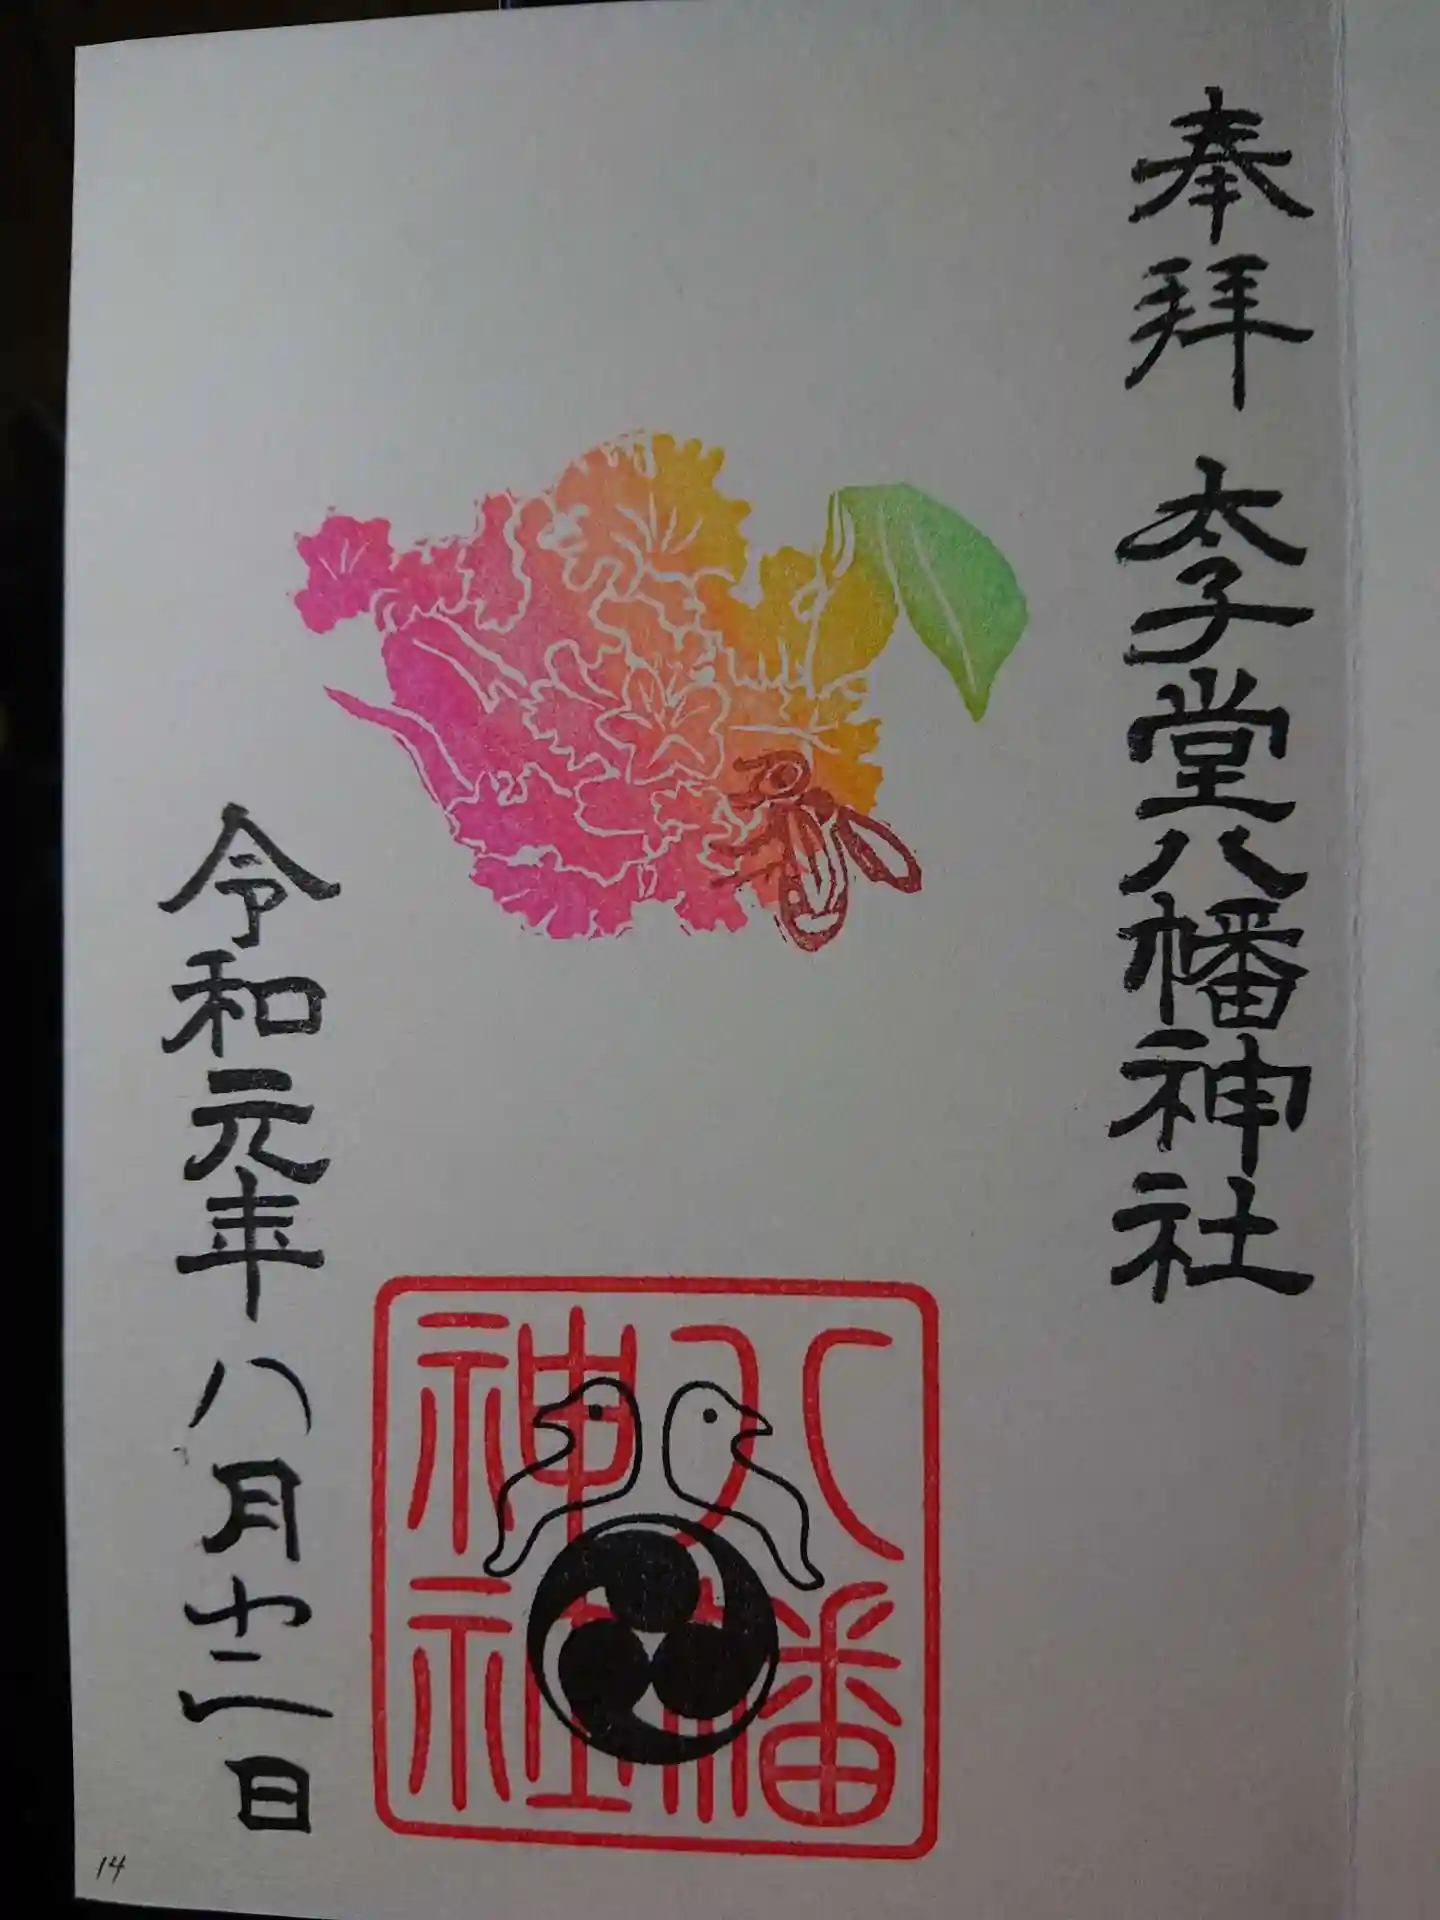 奉拝 太子堂八幡神社
令和元年 八月十二日
八幡
神社
14